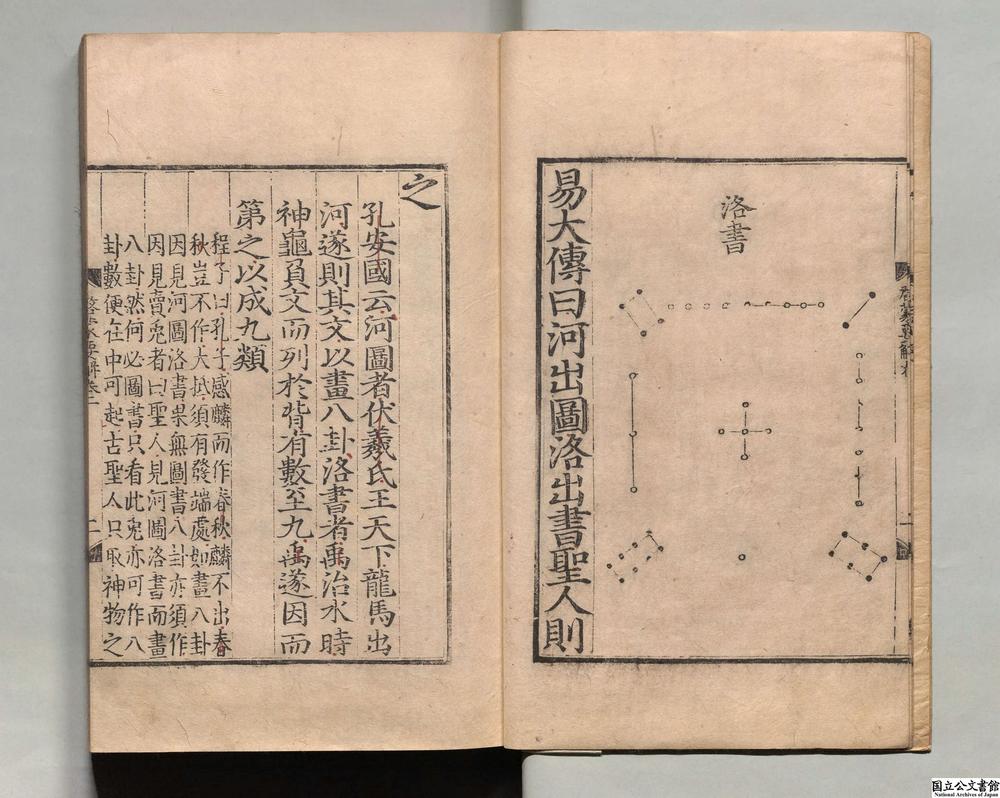 洛書
易大傳曰河出圖洛出書聖人則
之
孔安國云河圖者伏羲氏王天下龍馬出
河遂則其文以畫八卦洛書者禹治水時
神龜負文而列於背有數至九禹遂因而
第之以成九類
程子曰孔子感麟而作春秋麟不出春
秋豈不作大抵須有發端處如畫八卦
因見河圖洛書果無圖書八卦亦須作
因見賣兎者曰聖人見河圖洛書而畫
八卦然何必圖書只看此兎亦可作八
卦數便在中可起古聖人只取神物之
二
国立公文書館
National Archives of Japan